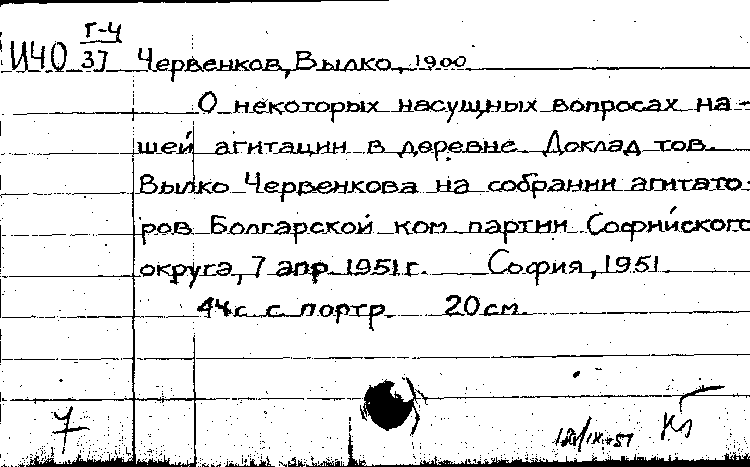 Г-4
И40 37 Червенков, Вылко, 1900
О некоторых насущных вопросах на-
шей агитации в деревне. Доклад тов.
Вылко Червенкова на собрании агитато-
ров Болгарской ком партии Софийского
округа, 7 апр. 1951 г. София, 1951.
44 с. с портр. 20 см.
7